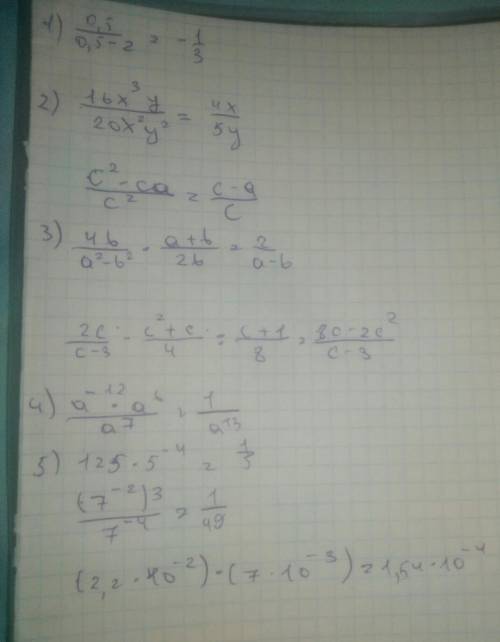 1) 0,5/(0,5-2) = -1/3
2) 16x³y/20x²y² = 4x/5y
(c²-ca)/c² = (c-a)/c
3) 4b/(a²-b²) · (a+b)/2b = 2/(a-b)
2c/(c-3) - (c²+c)/4 : (c+1)/8 = (8c-2c²)/(c-3)
4) (a⁻¹² · a⁶)/a⁷ = 1/a¹³
5) 125 · 5⁻⁴ = 1/5
(7⁻²)³/7⁻⁴ = 1/49
(2,2 · 10⁻²) · (7 · 10⁻³) = 1,54 · 10⁻⁴